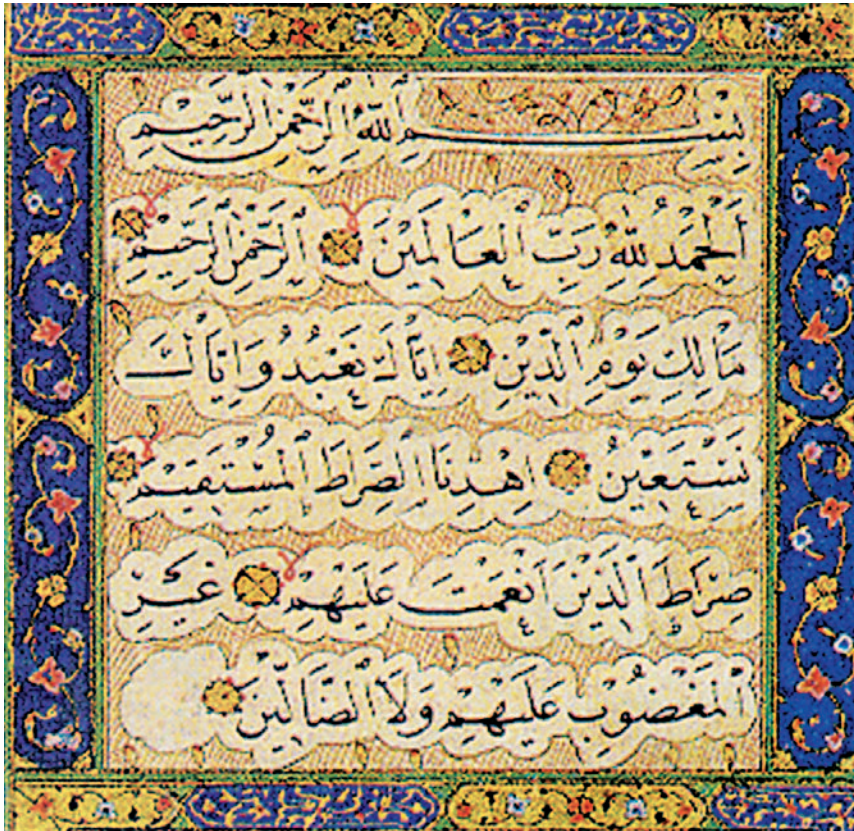 بِسْمِ ٱللّٰهِ ٱلرَّحْمٰنِ ٱلرَّحِيمِ
اَلْحَمْدُ لِلّٰهِ رَبِّ ٱلْعَالَمِينَ ٱلرَّحْمٰنِ ٱلرَّحِيمِ
مَالِكِ يَوْمِ ٱلدِّينِ اِيَّاكَ نَعْبُدُ وَاِيَّاكَ
نَسْتَعِينُ اِهْدِنَا ٱلصِّرَاطَ ٱلْمُسْتَقِيمَ
صِرَاطَ ٱلَّذِينَ اَنْعَمْتَ عَلَيْهِمْ غَيْرِ
ٱلْمَغْضُوبِ عَلَيْهِمْ وَلَا ٱلضَّالِّينَ